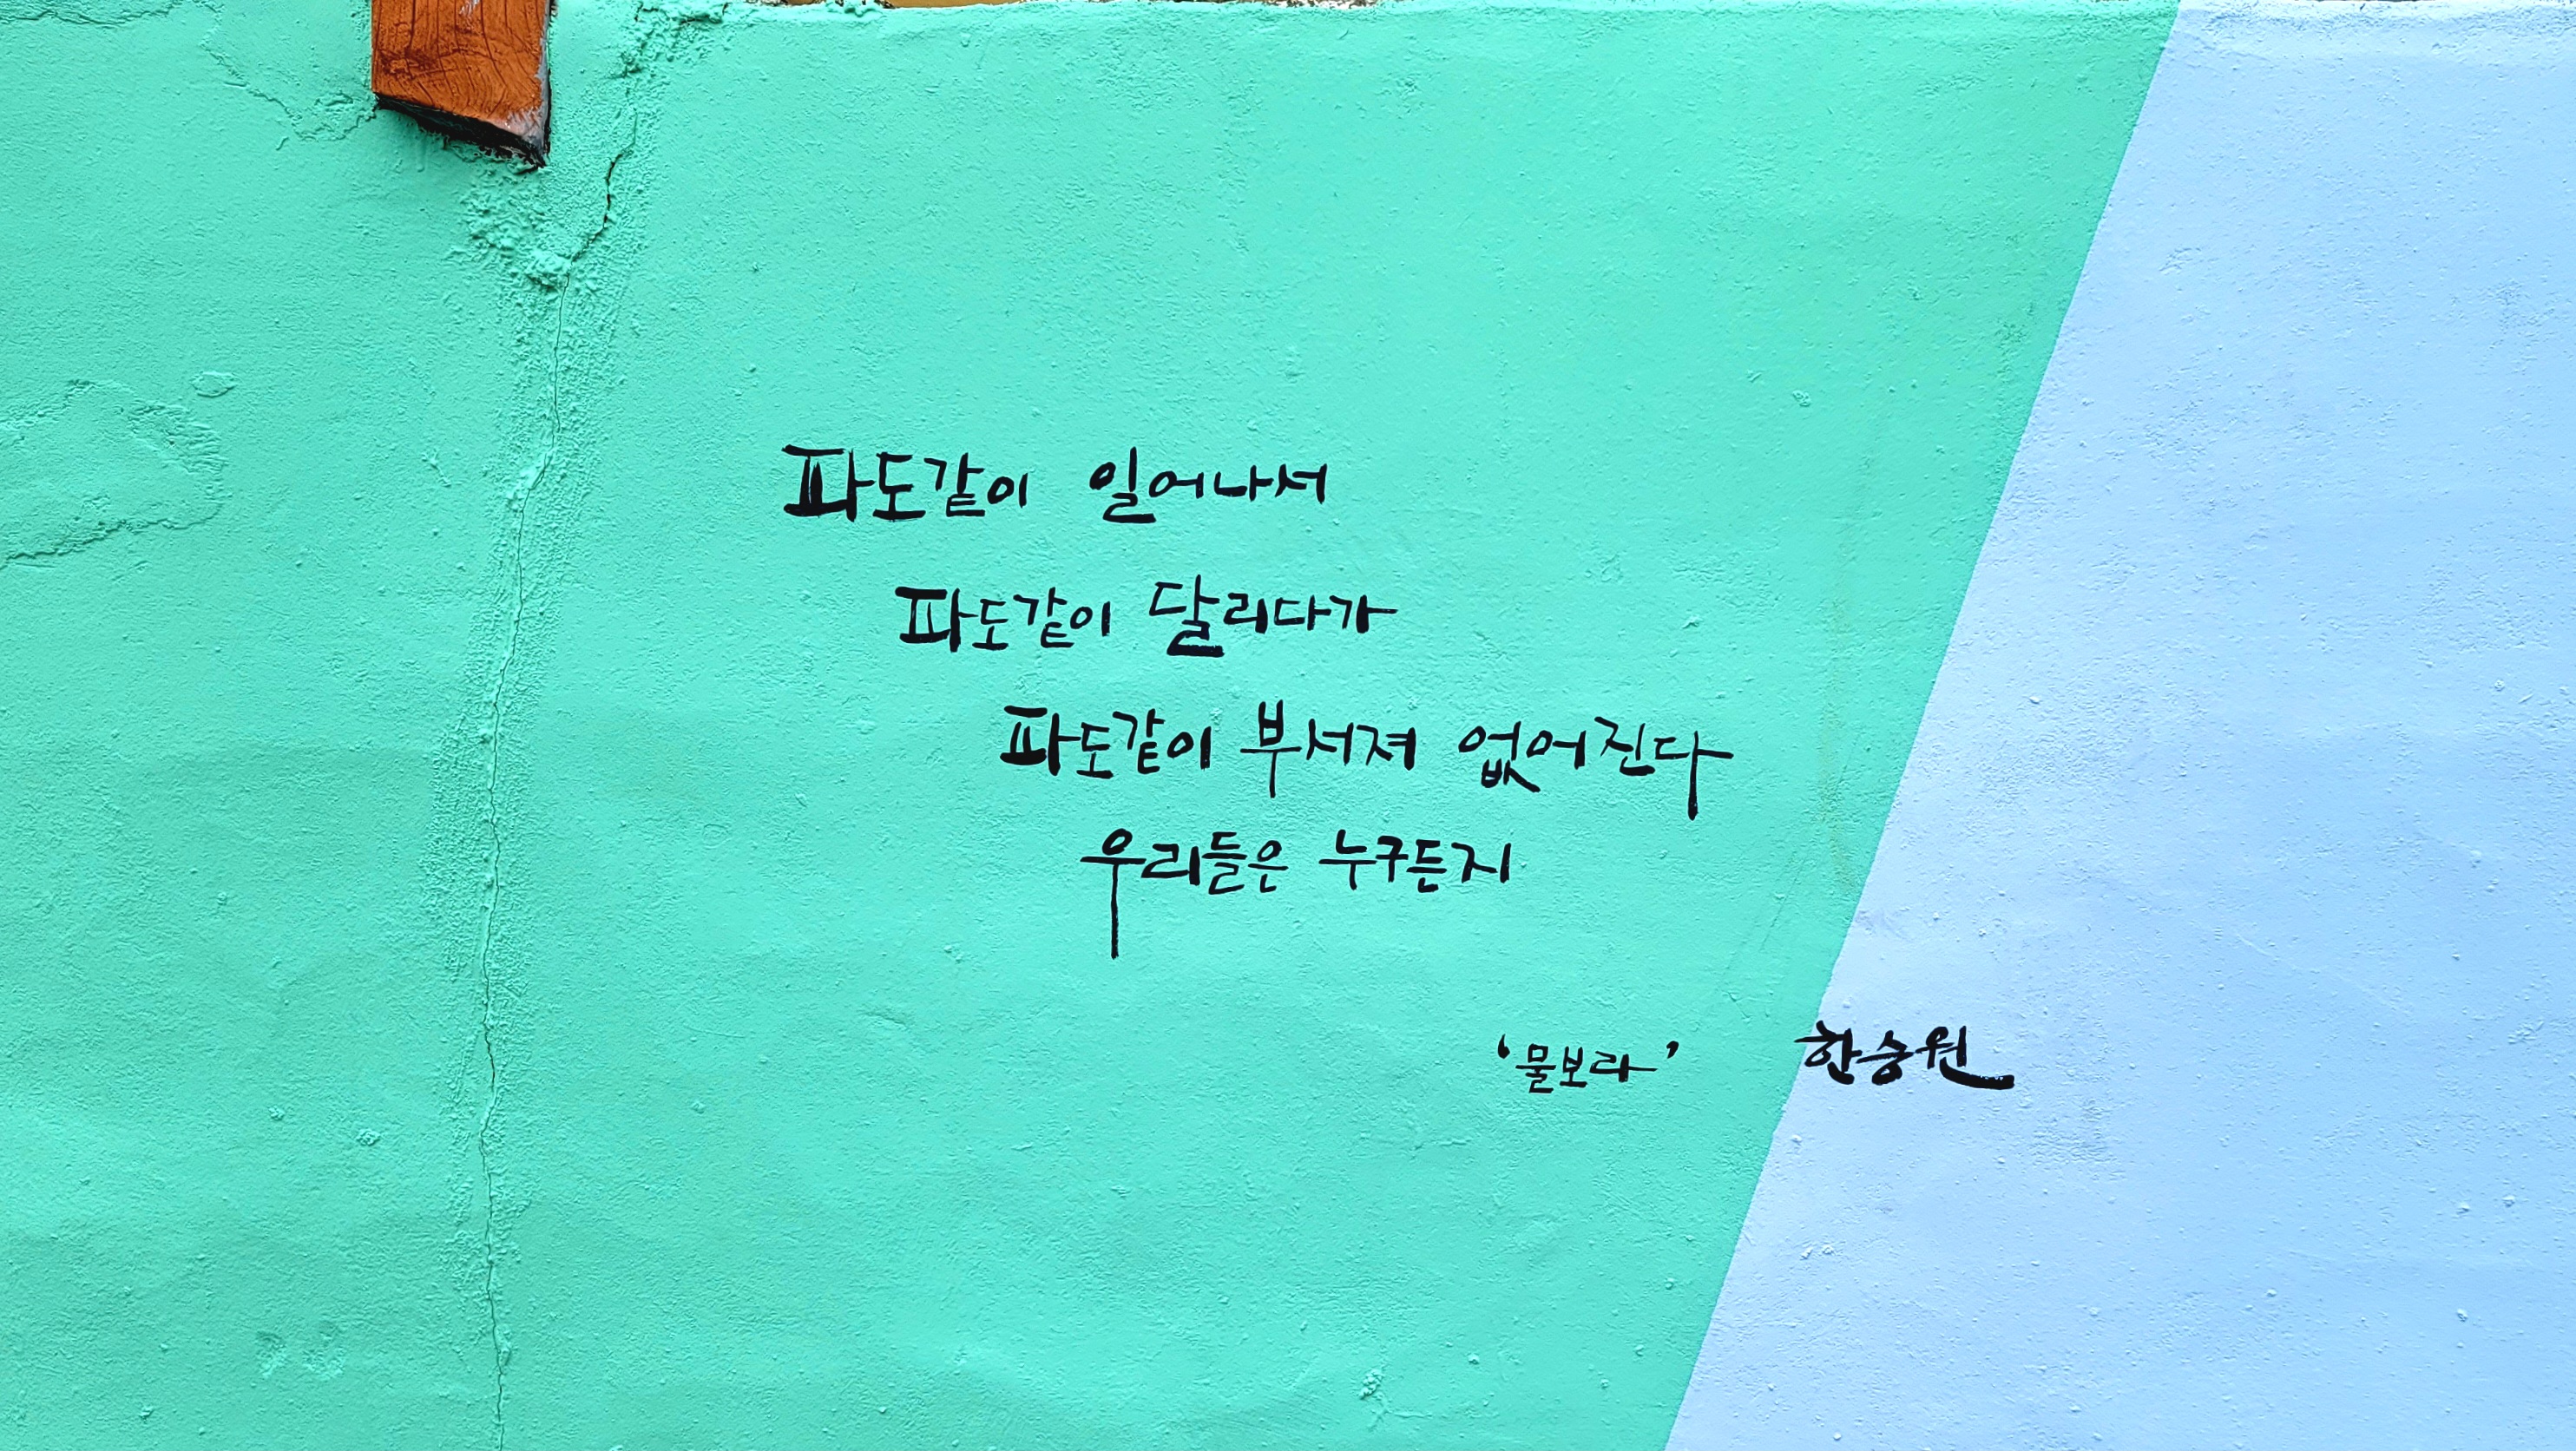 파도같이 일어나서
파도같이 달리다가
파도같이 부서져 없어진다
우리들은 누구든지
‘물보라’ 한승원